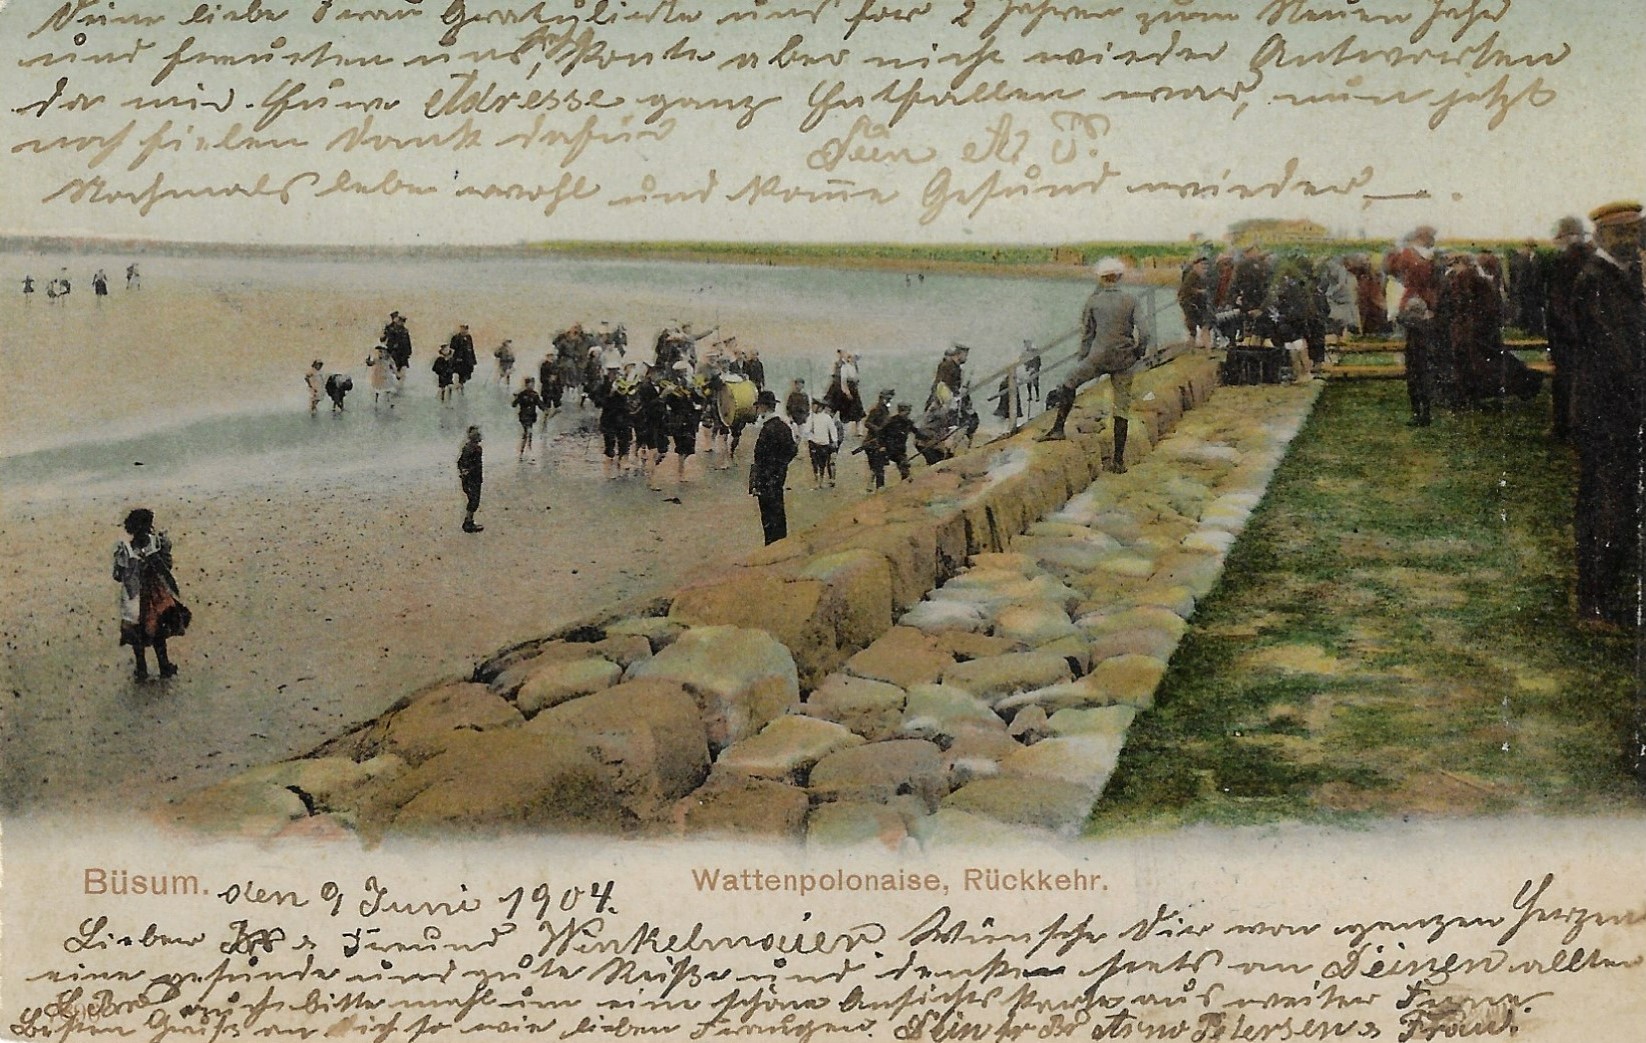 Deine liebe Frau Gratulirte uns for 2 Jahren zum Neuen Jahr
und freuten uns, konte aber nicht wieder Antworten
da mir Adresse ganz Entfallen war, nun jetzt
noch fielen Dank dafür
Dein A. P.
Nochmals lebe wohl und kom̄e Gesund wieder. —.
Büsum. den 9 Juni 1904. Wattenpolonaise, Rückkehr.
Lieber Freund Winkelmaier Wünsche Dir von ganzen Herzen
eine gesunde und gute Reiße und denke stets an Deinen allten
bitte mahl um eine schöne Ansichts Karte aus weiter Ferne.
Besten Gruß an Dich so wie lieben Fraugen. Dein Br Arno Petersen & Frau.